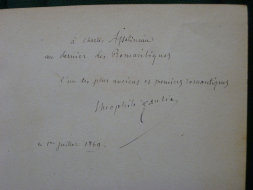 à Charles Asselineau
au dernier des Romantiques
l'un des plus anciens et premiers romantiques
Théophile Gautier
ce 1er juillet